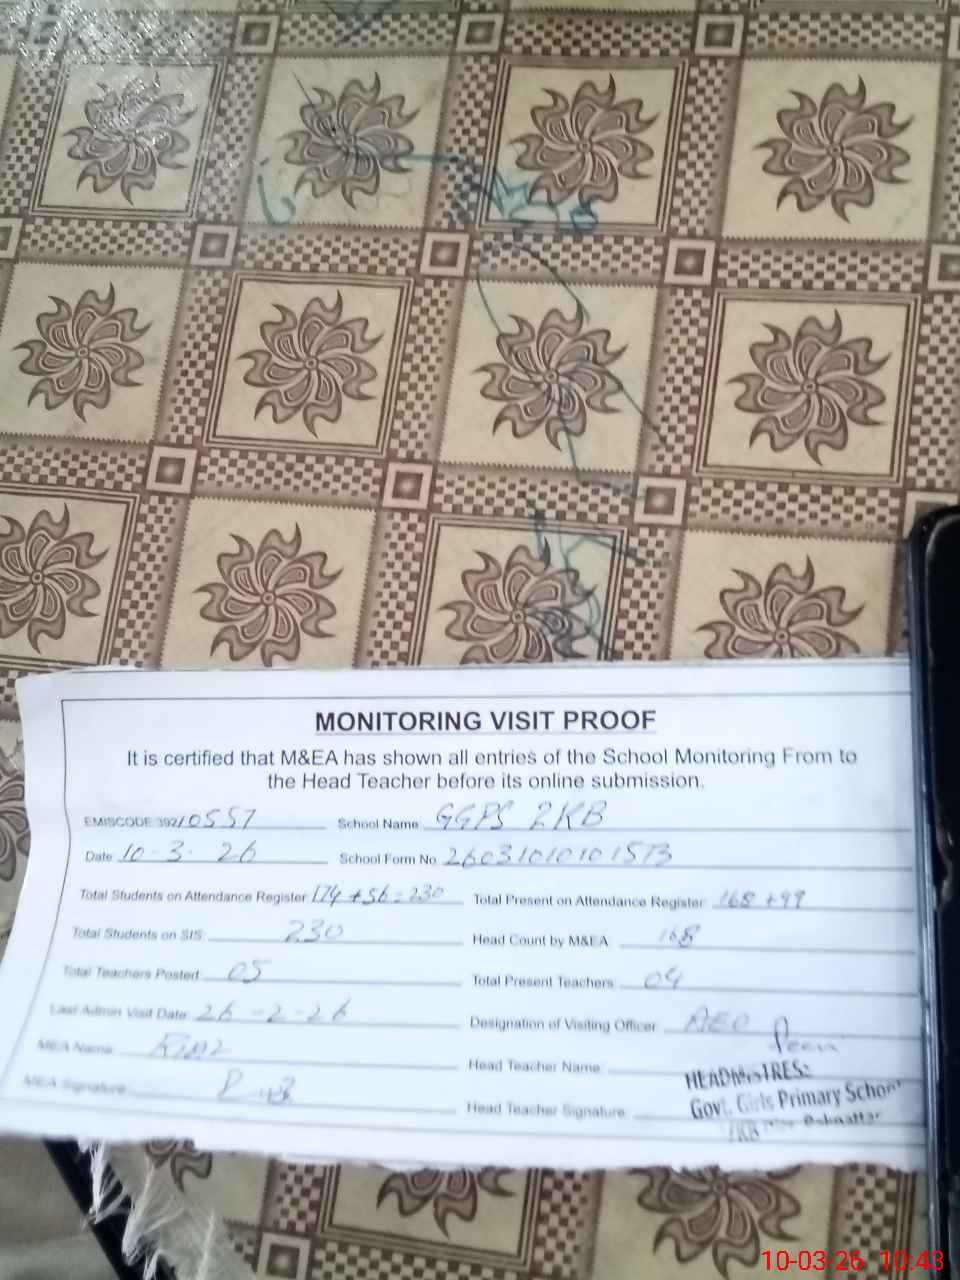 MONITORING VISIT PROOF
It is certified that M&EA has shown all entries of the School Monitoring From to
the Head Teacher before its online submission.
EMISCODE 392/10557 School Name GGPS 2KB
Date 10-3-26 School Form No. 260310101015
Total Students on Attendance Register 174+56=230 Total Present on Attendance Register 168+49
Total Students on SIS: 230 Head Count by M&EA 168
Total Teachers Posted: 05 Total Present Teachers: 04
Last Admin Visit Date: 26-2-26 Designation of Visiting Officer: AEO
MEA Name: Head Teacher Name:
MEA Signature: Head Teacher Signature:
HEADMISTRESS
Govt. Girls Primary School
10-03-26 10:43